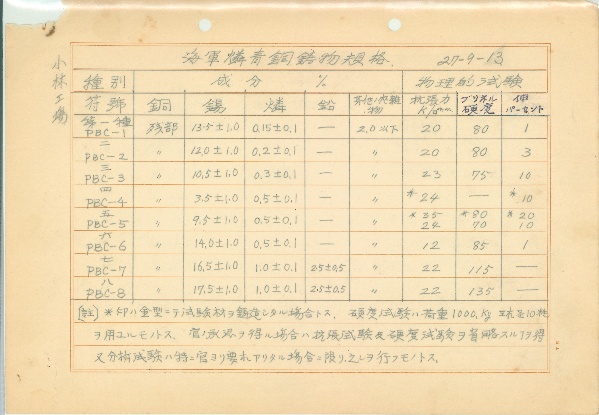 小林工場
海軍燐青銅鋳物規格. 27-9-13
種別 成分 % 物理的試験
符號 銅 錫 燐 鉛 其他ノ夾雜物 抗張力 ブリネル硬度 伸パーセント
第一種 PBC-1 残部 13.5±1.0 0.15±0.1 — 2.0以下 20 80 1
二 PBC-2 〃 12.0±1.0 0.2±0.1 — 〃 20 80 3
三 PBC-3 〃 10.5±1.0 0.3±0.1 — 〃 23 75 10
四 PBC-4 〃 3.5±1.0 0.5±0.1 — 〃 *24 — *10
五 PBC-5 〃 9.5±1.0 0.5±0.1 — 〃 *35 24 *80 70 *20 10
六 PBC-6 〃 14.0±1.0 0.5±0.1 — 〃 12 85 1
七 PBC-7 〃 16.5±1.0 1.0±0.1 2.5±0.5 〃 22 115 —
八 PBC-8 〃 17.5±1.0 1.0±0.1 2.5±0.5 〃 22 135 —
註 *印ハ金型ニテ試験材ヲ鑄造シタル場合トス、 硬度試験ハ荷重1000.Kg 球径10粍
ヲ用ユルモノトス、官ノ承認ヲ得ル場合ハ抗張試験及硬度試験ヲ省略スルヿヲ得
又分析試験ハ特ニ官ヨリ要求アリタル場合ニ限リ之レヲ行フモノトス、